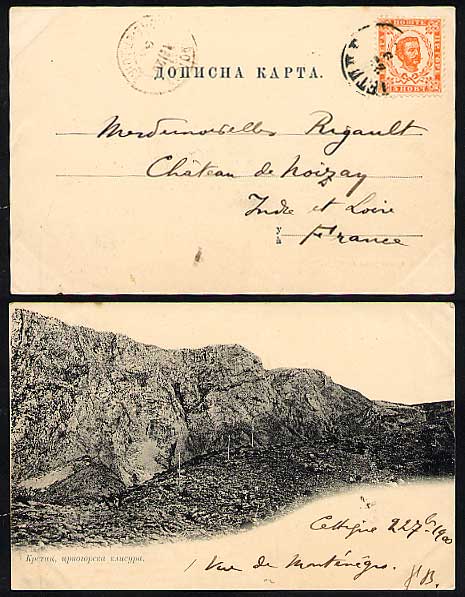 ДОПИСНА КАРТА.
Mesdemoiselles Rigault
Château de Noizay
Indre et Loire
у
France
Крстац, црногорска клисура.
Cettigné 22 7bre 1900
Vue de Monténégro.